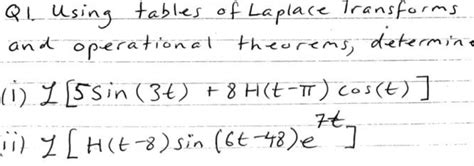 Q1. Using tables of Laplace Transforms
and operational theorems, determine
(i) ℒ[5sin(3t) + 8H(t-π)cos(t)]
ii) ℒ[H(t-8)sin(6t-48)e^7t]